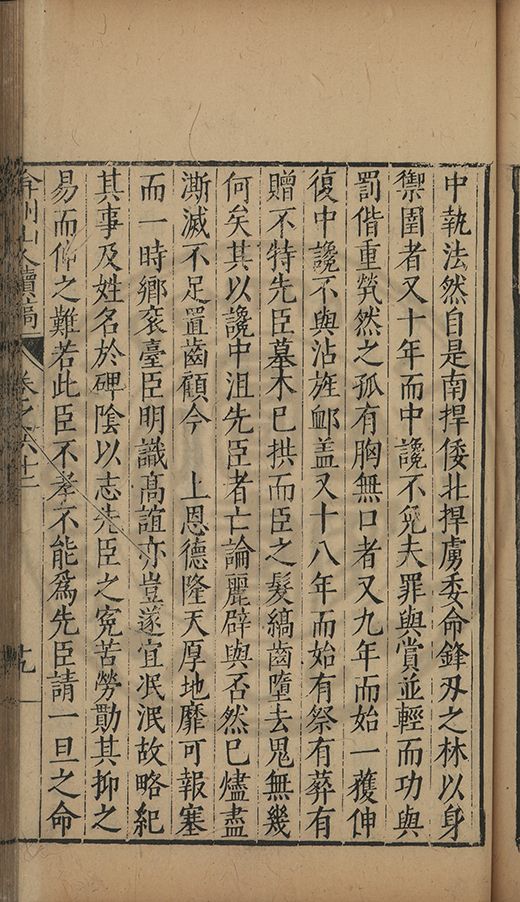 中執法然自是南捍倭北捍虜委命鋒刃之林以身
禦圉者又十年而中讒不免夫罪與賞並輕而功與
罰偕重煢然之孤有胸無口者又九年而始一獲伸
復中讒不與沾旌卹盖又十八年而始有祭有葬有
贈不特先臣墓木已拱而臣之髮縞齒墮去鬼無幾
何矣其以讒中沮先臣者亡論麗辟與否然已燼盡
澌滅不足置齒顧今 上恩德隆天厚地靡可報塞
而一時鄉袞臺臣明識高誼亦豈遂宜泯泯故略紀
其事及姓名於碑陰以志先臣之寃苦勞勩其抑之
易而伸之難若此臣不孝不能爲先臣請一旦之命
弇州山人續稿 卷之六十二 十九